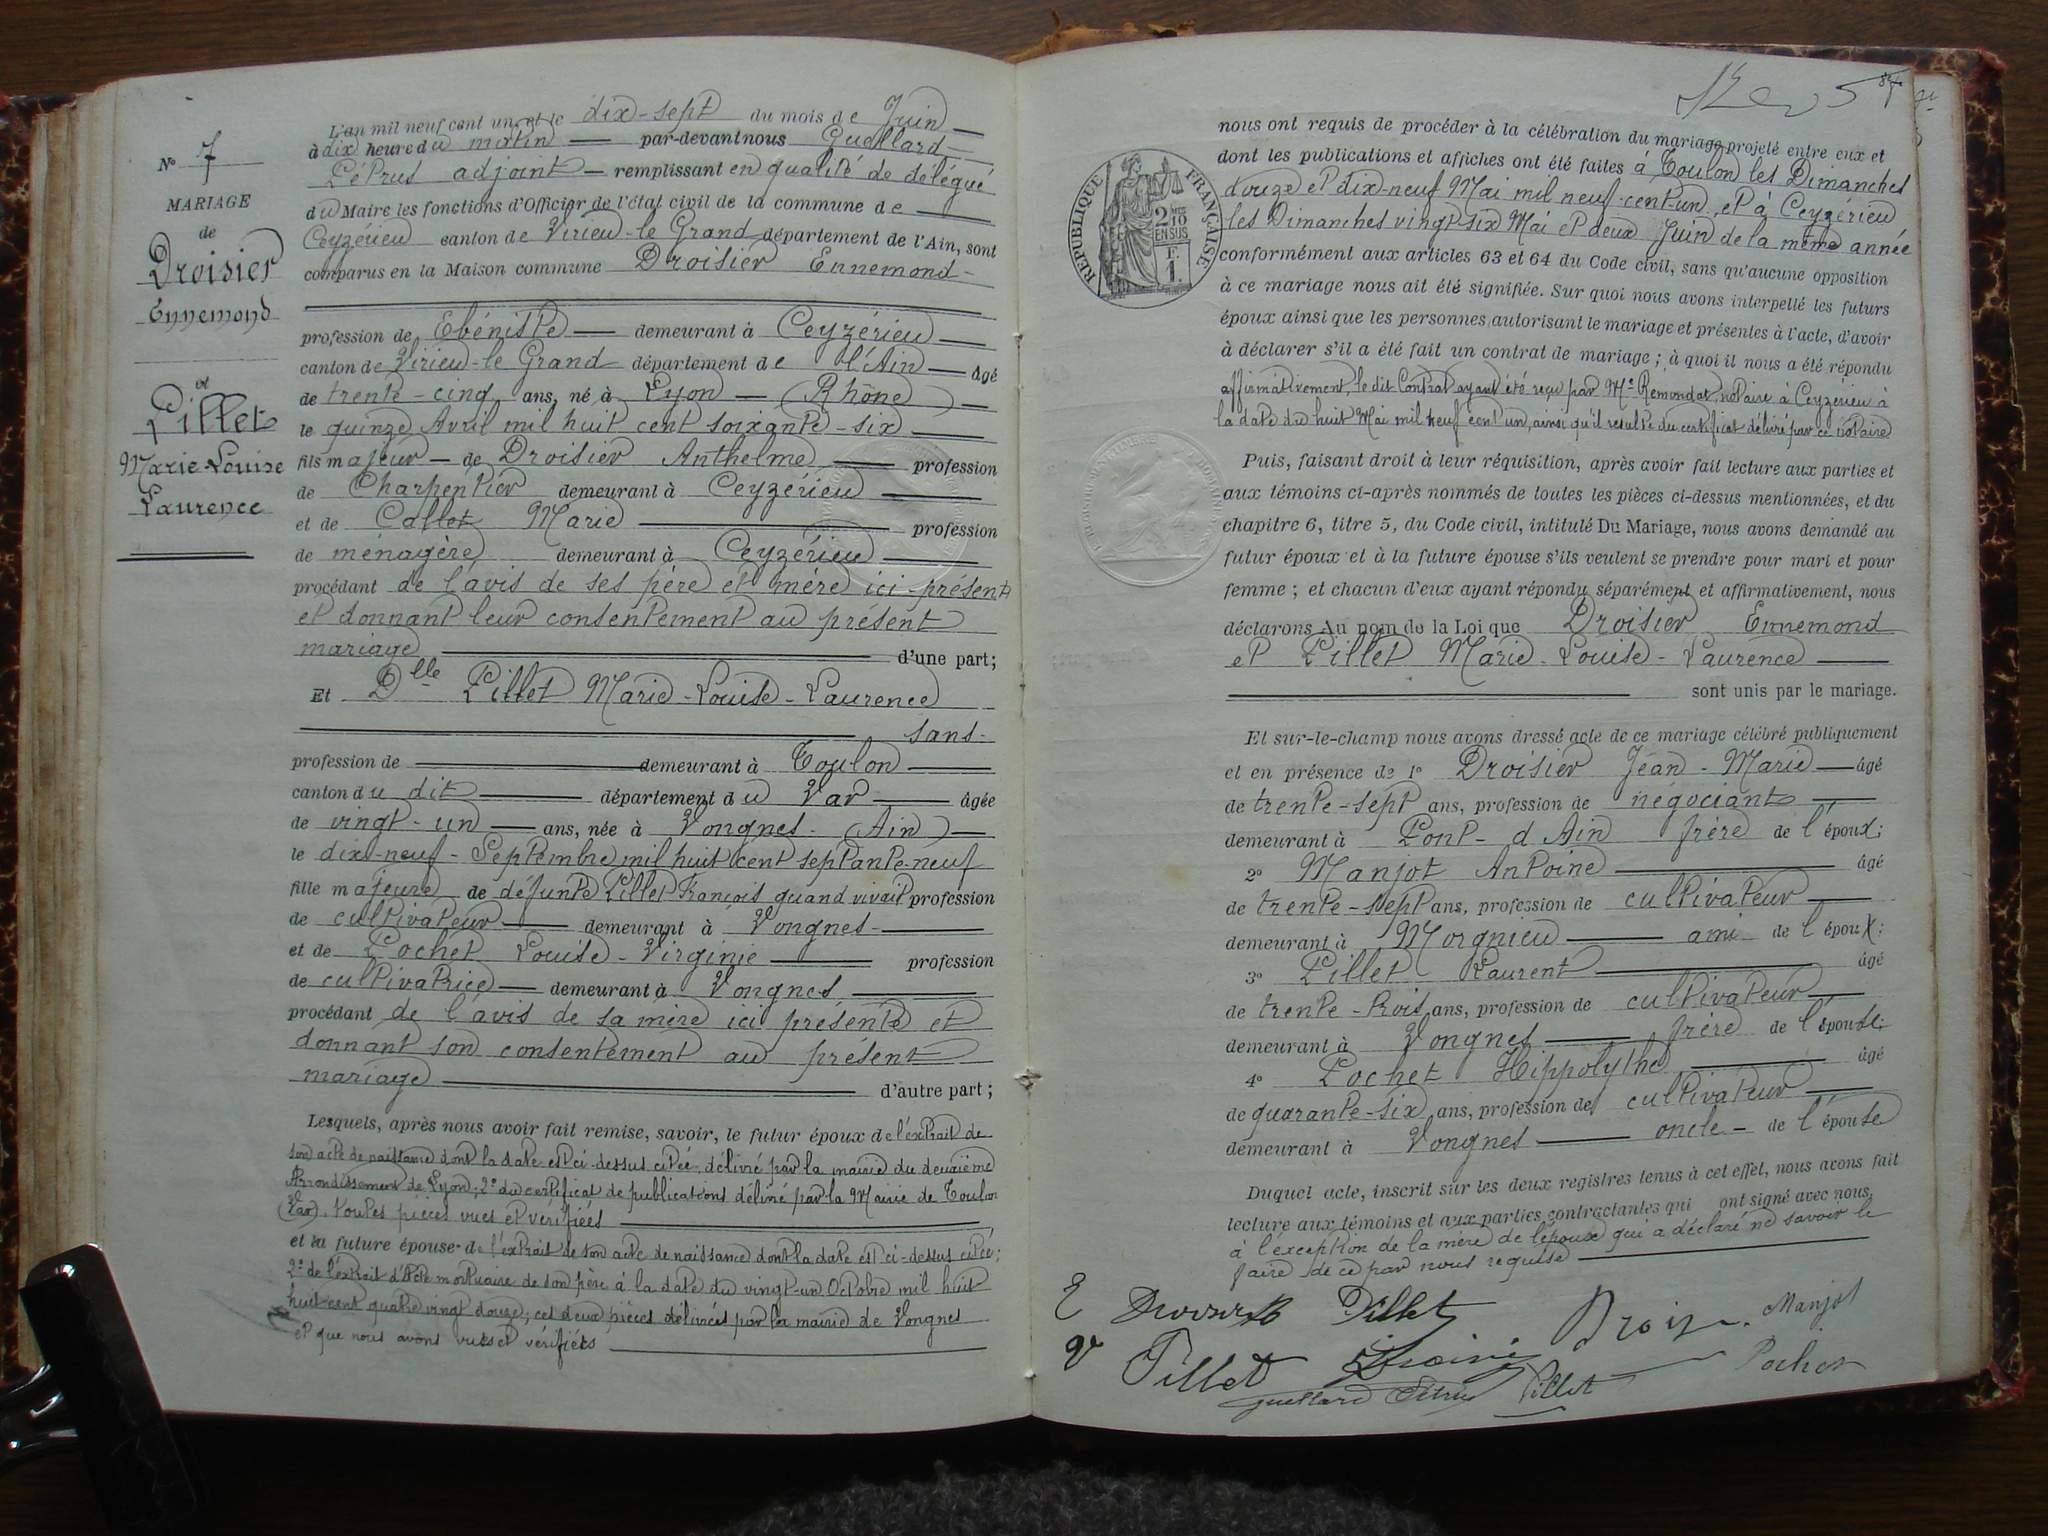 N° 7
MARIAGE
de
Droisier
Ennemond
et
Pillet
Marie-Louise
Laurence
L'an mil neuf cent un et le dix-sept du mois de Juin
à dix heure du matin par-devant nous Guellard
Pétrus adjoint remplissant en qualité de délégué
du Maire les fonctions d'Officier de l'état civil de la commune de
Ceyzérieu canton de Virieu-le Grand département de l'Ain, sont
comparus en la Maison commune Droisier Ennemond
profession de Ebéniste demeurant à Ceyzérieu
canton de Virieu-le Grand département de l'Ain âgé
de trente-cinq ans, né à Lyon (Rhône)
le quinze Avril mil huit cent soixante-six
fils majeur de Droisier Anthelme profession
de Charpentier demeurant à Ceyzérieu
et de Callet Marie profession
de ménagère demeurant à Ceyzérieu
procédant de l'avis de ses père et mère ici-présents
et donnant leur consentement au présent
mariage d'une part;
Et Dlle Pillet Marie-Louise-Laurence
sans
profession de demeurant à Toulon
canton du dit département du Var âgée
de vingt-un ans, née à Vongnes (Ain)
le dix-neuf Septembre mil huit cent septante-neuf
fille majeure de défunte Pillet François quand vivait profession
de cultivateur demeurant à Vongnes
et de Pochet Louise-Virginie profession
de cultivatrice demeurant à Vongnes
procédant de l'avis de sa mère ici présente et
donnant son consentement au présent
mariage d'autre part;
Lesquels, après nous avoir fait remise, savoir, le futur époux de l'extrait de
son acte de naissance dont la date est ci-dessus citée, délivré par la mairie du deuxième
Arrondissement de Lyon; 2° du certificat de publications délivré par la Mairie de Toulon
(Var). toutes pièces vues et vérifiées
et la future épouse de l'extrait de son acte de naissance dont la date est ci-dessus citée;
2° de l'extrait d'Acte mortuaire de son père à la date du vingt-un Octobre mil huit
huit cent quatre vingt douze; ces deux pièces délivrées par la mairie de Vongnes
et que nous avons vues et vérifiées
84
nous ont requis de procéder à la célébration du mariage projeté entre eux et
dont les publications et affiches ont été faites à Toulon les Dimanches
douze et dix-neuf Mai mil neuf-cent-un, et à Ceyzérieu
les Dimanches vingt-six Mai et deux Juin de la même année
conformément aux articles 63 et 64 du Code civil, sans qu'aucune opposition
à ce mariage nous ait été signifiée. Sur quoi nous avons interpellé les futurs
époux ainsi que les personnes autorisant le mariage et présentes à l'acte, d'avoir
à déclarer s'il a été fait un contrat de mariage; à quoi il nous a été répondu
affirmativement, le dit Contrat ayant été reçu par Me Remondat, notaire à Ceyzérieu à
la date du huit Mai mil neuf cent un, ainsi qu'il resulte du certificat délivré par ce notaire
RÉPUBLIQUE FRANÇAISE
2 10 EN SUS
F. 1.
Puis, faisant droit à leur réquisition, après avoir fait lecture aux parties et
aux témoins ci-après nommés de toutes les pièces ci-dessus mentionnées, et du
chapitre 6, titre 5, du Code civil, intitulé Du Mariage, nous avons demandé au
futur époux et à la future épouse s'ils veulent se prendre pour mari et pour
femme; et chacun d'eux ayant répondu séparément et affirmativement, nous
déclarons Au nom de la Loi que Droisier Ennemond
et Pillet Marie-Louise-Laurence
sont unis par le mariage.
Et sur-le-champ nous avons dressé acte de ce mariage célébré publiquement
et en présence de 1° Droisier Jean-Marie âgé
de trente-sept ans, profession de négociant
demeurant à Pont-d'Ain frère de l'époux;
2° Manjot Antoine âgé
de trente-sept ans, profession de cultivateur
demeurant à Morgnieu ami de l'époux;
3° Pillet Laurent âgé
de trente-trois ans, profession de cultivateur
demeurant à Vongnes frère de l'épouse;
4° Pochet Hippolythe âgé
de quarante-six ans, profession de cultivateur
demeurant à Vongnes oncle de l'épouse
Duquel acte, inscrit sur les deux registres tenus à cet effet, nous avons fait
lecture aux témoins et aux parties contractantes qui ont signé avec nous
à l'exception de la mère de l'époux qui a déclaré ne savoir le
faire de ce par nous requise
E Pillet Manjot
Pillet Pochet
Guellard Pétrus Pillet